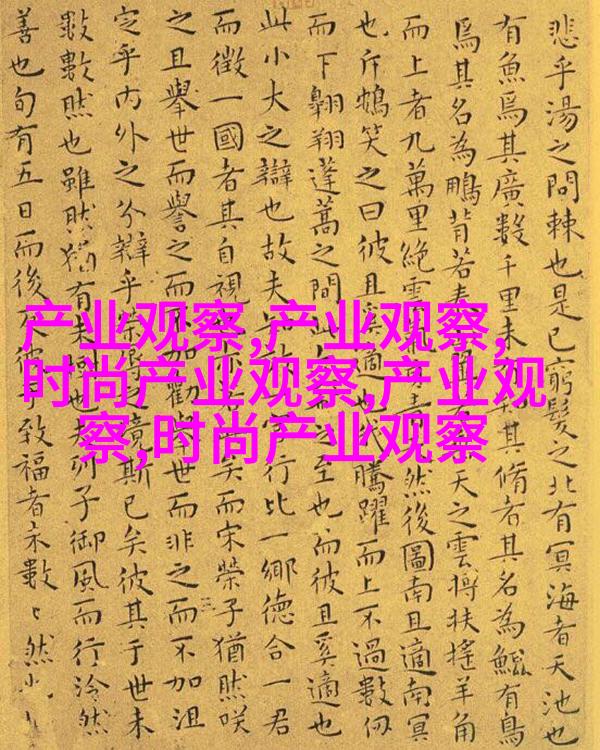 悲乎湯之問棘也是已窮髮之北有冥海者天池也
有魚焉其廣數千里未知其脩者其名為鯤有鳥
焉其名為鵬背若泰天之雲摶扶搖羊角
而上者九萬里絕雲氣青然後圖南且適南冥
也斥鴳笑之曰彼且奚適也騰躍而上不過數仞
而下翱翔蓬蒿之間此至也而彼且奚適也
此小大之辯也故夫行比一鄉德合一君
而徵一國者其自視亦矣而宋榮子猶然咲
之且舉世而譽之而不加勸舉世而非之而不加沮
定乎內外之分辯乎榮辱境斯已矣彼其于世未
數數然也雖然猶有未也列子御風而行泠然
善也旬有五日而後反彼于致福者未數〻然也
产业观察,产业观察,
时尚产业观察,产业观
察,时尚产业观察